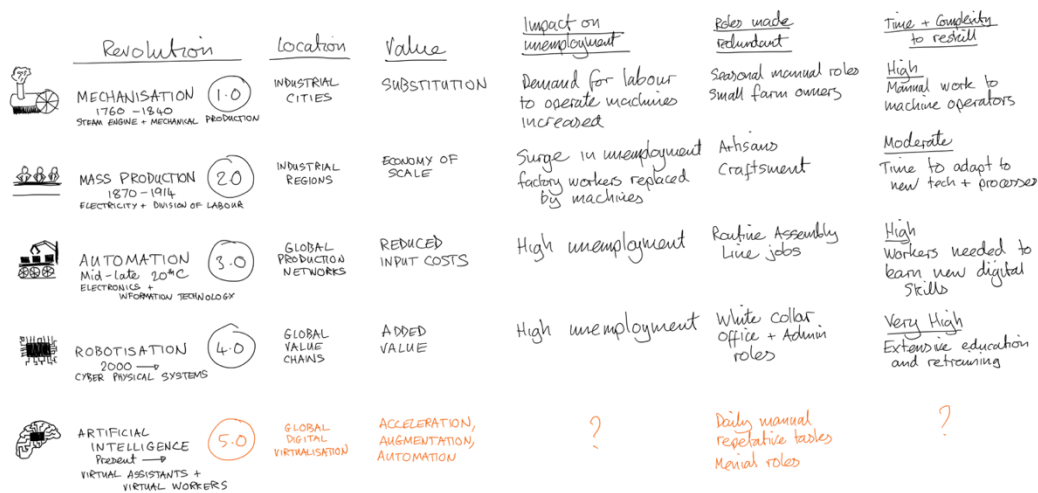 Revolution
Location
Value
Impact on
unemployment
Roles made
redundant
Time + Complexity
to reskill
MECHANISATION
1.0
1760 - 1840
STEAM ENGINE + MECHANICAL PRODUCTION
INDUSTRIAL
CITIES
SUBSTITUTION
Demand for labour
to operate machines
increased
Seasonal manual roles
Small farm owners
High
Manual work to
machine operators
MASS PRODUCTION
2.0
1870 - 1914
ELECTRICITY + DIVISION OF LABOUR
INDUSTRIAL
REGIONS
ECONOMY OF
SCALE
Surge in unemployment
factory workers replaced
by machines
Artisans
Craftsment
Moderate
Time to adapt to
new tech + processes
AUTOMATION
3.0
Mid-late 20thC
ELECTRONICS +
INFORMATION TECHNOLOGY
GLOBAL
PRODUCTION
NETWORKS
REDUCED
INPUT COSTS
High unemployment
Routine Assembly
Line jobs
High
Workers needed to
learn new digital
skills
ROBOTISATION
4.0
2000 →
CYBER PHYSICAL SYSTEMS
GLOBAL
VALUE
CHAINS
ADDED
VALUE
High unemployment
White collar
office + Admin
roles
Very High
Extensive education
and retraining
ARTIFICIAL
INTELLIGENCE
5.0
Present →
VIRTUAL ASSISTANTS +
VIRTUAL WORKERS
GLOBAL
DIGITAL
VIRTUALISATION
ACCELERATION,
AUGMENTATION,
AUTOMATION
?
Daily manual
repetative tasks
Menial roles
?